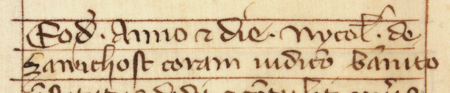 Eod. Anno ⁊ die. Nycol. de
Zawichost coram iudico bannito